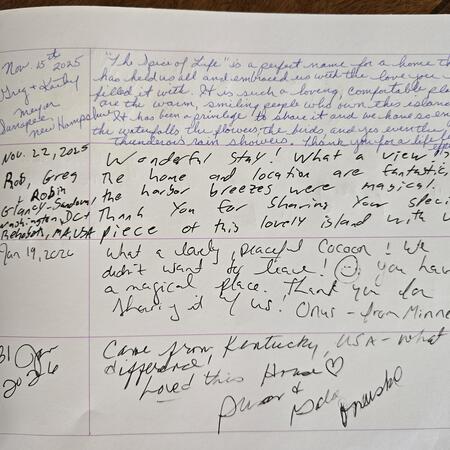 Nov. 15th 2025
Greg + Kathy
Meyer
Sunapee,
New Hampshire
"The Spice of Life" is a perfect name for a home th
has held us all and embraced us with the love you
filled it with. It is such a loving, comfortable pla
are the warm, smiling people who own this island
It has been a privilege to share it and we have so en
the waterfalls, the flowers, the birds, and yes even the
thunderous rain showers. Thank you for a life
Nov. 22, 2025
Rob, Greg
+ Robin
Glancy-Sandoval,
Washington, DC +
MA, USA
Wonderful Stay! What a view!
The home and location are fantastic,
the harbor breezes were magical.
Thank You for Sharing Your speci
piece of this lovely island with u
Jan 19, 2026
What a lovely, peaceful Cocoon! We
didn't want to leave! you have
a magical place. Thank you for
Sharing it w/ us! Onus - from Minne
31 Jan
2026
Came from Kentucky, USA - what
difference,
Loved this House ♡